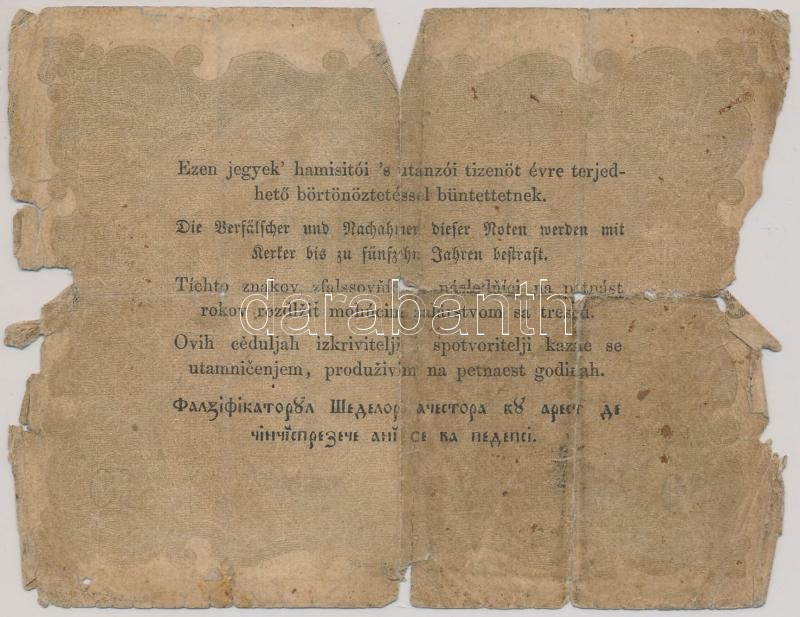 Ezen jegyek' hamisitói 's utánzói tizenöt évre terjed-
hető börtönöztetéssel büntettetnek.
Die Verfälscher und Nachahmer dieser Noten werden mit
Kerker bis zu fünfzehn Jahren bestraft.
Tíchto znakov zfalssovňí následňíci na pätnást
rokov rozdĺžiť mohúcim žalárstvom sa trescú.
darabanth
Ovih cěduljah izkrivitelji spotvoritelji kazne se
utamničenjem, produživim na petnaest godinah.
Фалзіфікаторꙋл Шеделор ачестора кꙋ арест де
чінчіспрезече ані се ва педепсі.